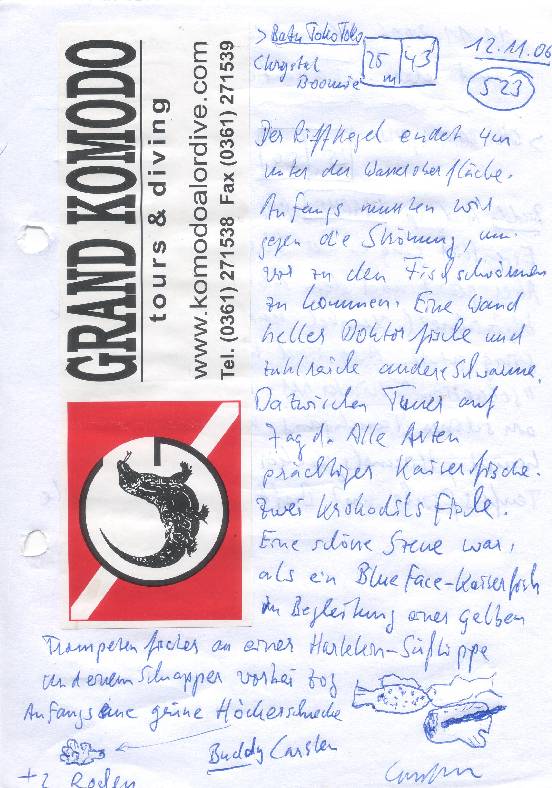 GRAND KOMODO
tours & diving
www.komodoalordive.com
Tel. (0361) 271538 Fax (0361) 271539
> Batu TokoToko
Chrystal
Boomie
25 m 43
12.11.06
523
Der Riffkegel endet 4m
unter der Wasseroberfläche.
Anfangs mussten wir
gegen die Strömung, um
vor zu den Fischschwärmen
zu kommen. Eine Wand
heller Doktorfische und
zahlreiche andere Schwärme.
Dazwischen Tuner auf
Jagd. Alle Arten
prächtiger Kaiserfische.
Zwei Krokodilsfische.
Eine schöne Szene war,
als ein BlueFace-Kaiserfisch
in Begleitung eines gelben
Trompetenfisches an einer Harlekin-Süßlippe
und einem Schnapper vorbei zog
Anfangs eine grüne Höckerschnecke
Buddy Carsten
+ 2 Rochen